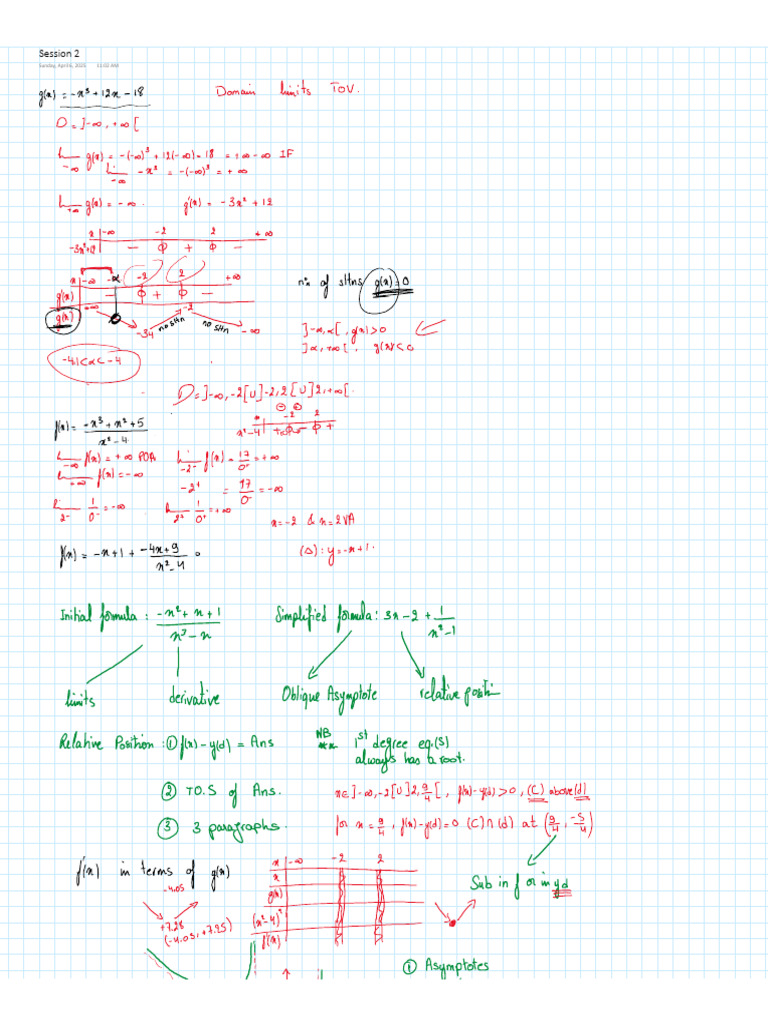 Session 2
Sunday, April 6, 2025 11:02 AM
g(x) = -x³ + 12x - 18
Domain limits TOV.
D = ]-∞, +∞[
lim g(x) = -(-∞)³ + 12(-∞) - 18 = +∞ -∞ IF
-∞
lim -x³ = -(-∞)³ = +∞
-∞
lim g(x) = -∞. g'(x) = -3x² + 12
+∞
x -∞ -2 2 +∞
-3x²+12 - ϕ + ϕ -
x -∞ α -2 2 +∞
g'(x) - ϕ + ϕ -
g(x) +∞ -34 no sltn -2 no sltn -∞
nº of sltns g(x) = 0
]-∞, α[, g(x) > 0
]α, +∞[, g(x) < 0
-4.1 < α < -4
D = ]-∞, -2[ U ]-2, 2[ U ]2, +∞[.
f(x) = -x³ + x² + 5
x² - 4
-2 2
x²-4 + ϕ - ϕ +
lim f(x) = +∞ POA
-∞
lim f(x) = 17/0⁺ = +∞
-2⁻
lim f(x) = -∞
+∞
-2⁺ = 17/0⁻ = -∞
lim 1/0⁻ = -∞
2⁻
lim 1/0⁺ = +∞
2⁺
x = -2 & x = 2 VA
f(x) = -x + 1 + -4x + 9
x² - 4
(Δ): y = -x + 1.
Initial formula : -x² + x + 1
x³ - x
Simplified formula : 3x - 2 + 1
x² - 1
limits derivative Oblique Asymptote relative positi
Relative Position : ① f(x) - y(d) = Ans
NB ** 1st degree eq.(s)
always has a root.
② T.O.S of Ans.
x∈]-∞, -2[ U ]2, 9/4[, f(x) - y(d) > 0, (C) above (d)
③ 3 paragraphs.
for x = 9/4, f(x) - y(d) = 0 (C)∩(d) at (9/4, -5/4)
Sub in f or in yd
f'(x) in terms of g(x)
x -∞ -2 2
x
g(x)
(x²-4)²
f'(x)
-4.05
+7.28
(-4.05, +7.25)
① Asymptotes